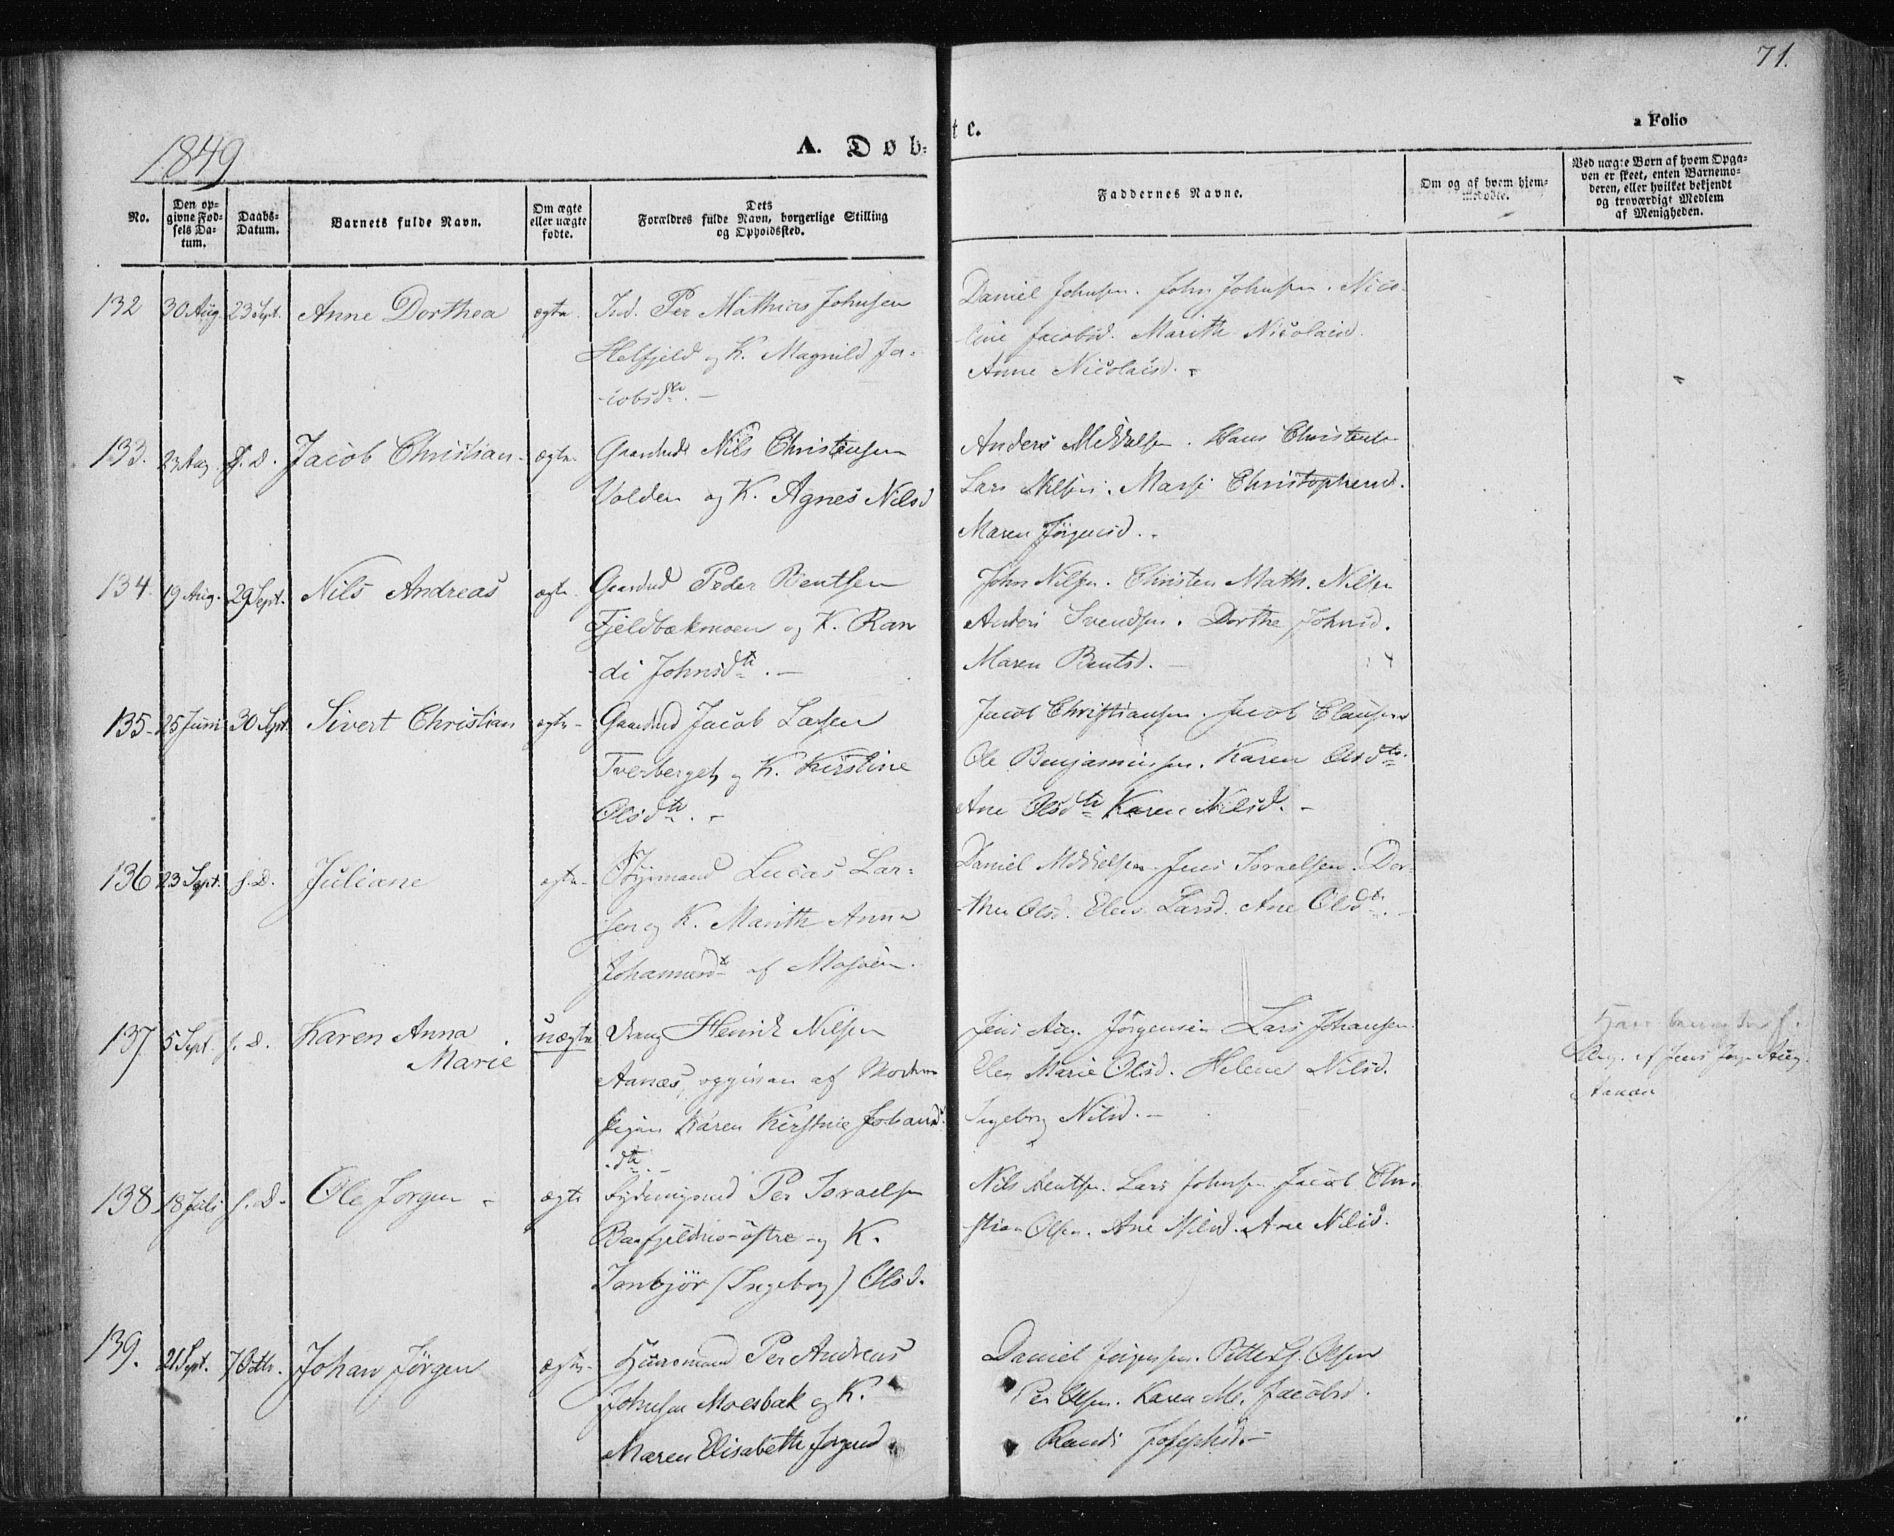 71.
1849
A. Døb-
te.
a Folio
No.
Den opgivne Fødsels Datum.
Daabs-Datum.
Barnets fulde Navn.
Om ægte eller uægte fødte.
Dets Forældres fulde Navn, borgerlige Stilling og Opholdssted.
Faddernes Navne.
Om og af hvem hjemmedøbt.
Ved uægte Børn af hvem Opgaven er skeet, enten Barnemoderen, eller hvilket bekjendt og troværdigt Medlem af Menigheden.
132 30 Aug. 23 Sept. Anne Dorthea ægte. Ind. Per Mathias Johnsen
Helfjeld og K. Magnild Ja-
cobsdtr. -
Daniel Johnsen. John Johnsen. Nico-
line Jacobsd. Marith Nicolaisd.
Anne Nicolaisd.
133. 23 Aug. s. D. Jacob Christian ægte. Nils Christensen
Volden og K. Agnes Nilsd
Anders Mikkelsen. Hans Christensen
Lars Nilsen. Christophersd.
Maren Jørgensd.
134. 19 Aug. 29 Sept. Nils Andreas ægte. Gaardmd Peder Bentsen
Fjeldbækmoen og K. Ran
di Johnsdtr. -
John Nilsen. Christen Math. Nilsen
Anders Svendsen. Dorthe Johnsd.
Maren Bentsd. -
135- 25 Juni 30 Sept. Sivert Christian ægte- Gaardmd Jacob Larsen
Tverberget og K. Kirstine
Olsdtr. -
Jacob Christiansen. Jacob Clausen
Ole Benjaminsen. Karen Olsdtr.
Ane Olsdtr Karen Nilsd. -
136 23 Sept. s. D. Juliane ægte- Lucas Lar-
sen og K. Marith Anna
Johannesd af
Daniel Mikkelsen. Jens Israelsen. Dor-
thea Olsd. Elen Larsd. Ane Olsdtr. -
137 5 Sept. s. D. Karen Anna
Marie uægte Henrik Nilsen
Aanæs, opgiven af Moderen
Pigen Karen Kirstine Johans
dtr. -
Jens Aug. Jørgensen Lars Johansen.
Elen Marie Olsd. Helene Nilsd.
Ingeborg Nilsd. -
af Jens Aug.
138 18 Juli s. D. Ole Jørgen - ægte Per Israelsen
østre og K.
(Ingeborg) Olsd.
Nils Bentsen. Lars Johnsen Jacob Chri
stian Olsen. Ane Nilsd. Ane Nilsd.
139. 21 Sept. 7 Octbr. Johan Jørgen ægte- Huusmand Per Andreas
Johnsen Moesbak og K.
Maren Elisabeth Jørgensd.
Daniel Jørgensen. Olsen
Per Olsen. Karen M. Jacobsd.
Randi Josephsd. -